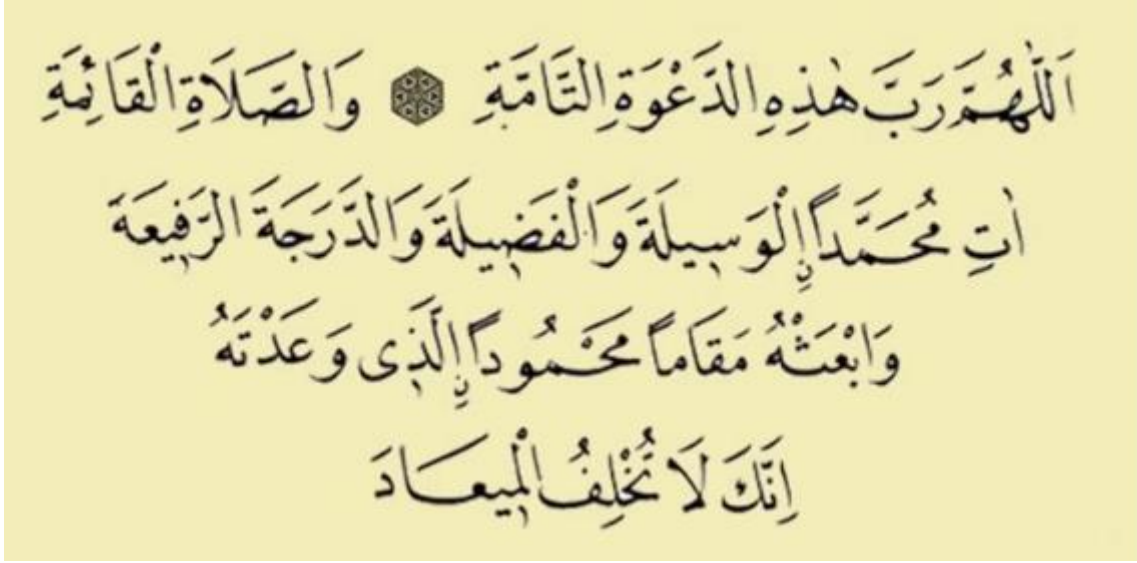 اَللّٰهُمَّ رَبَّ هٰذِهِ الدَّعْوَةِ التَّامَّةِ ۞ وَالصَّلَاةِ الْقَائِمَةِ
اٰتِ مُحَمَّداًنِ الْوَسِيلَةَ وَالْفَضِيلَةَ وَالدَّرَجَةَ الرَّفِيعَةَ
وَابْعَثْهُ مَقَاماً مَحْمُوداًنِ الَّذِى وَعَدْتَهُ
اِنَّكَ لَا تُخْلِفُ الْمِيعَادَ